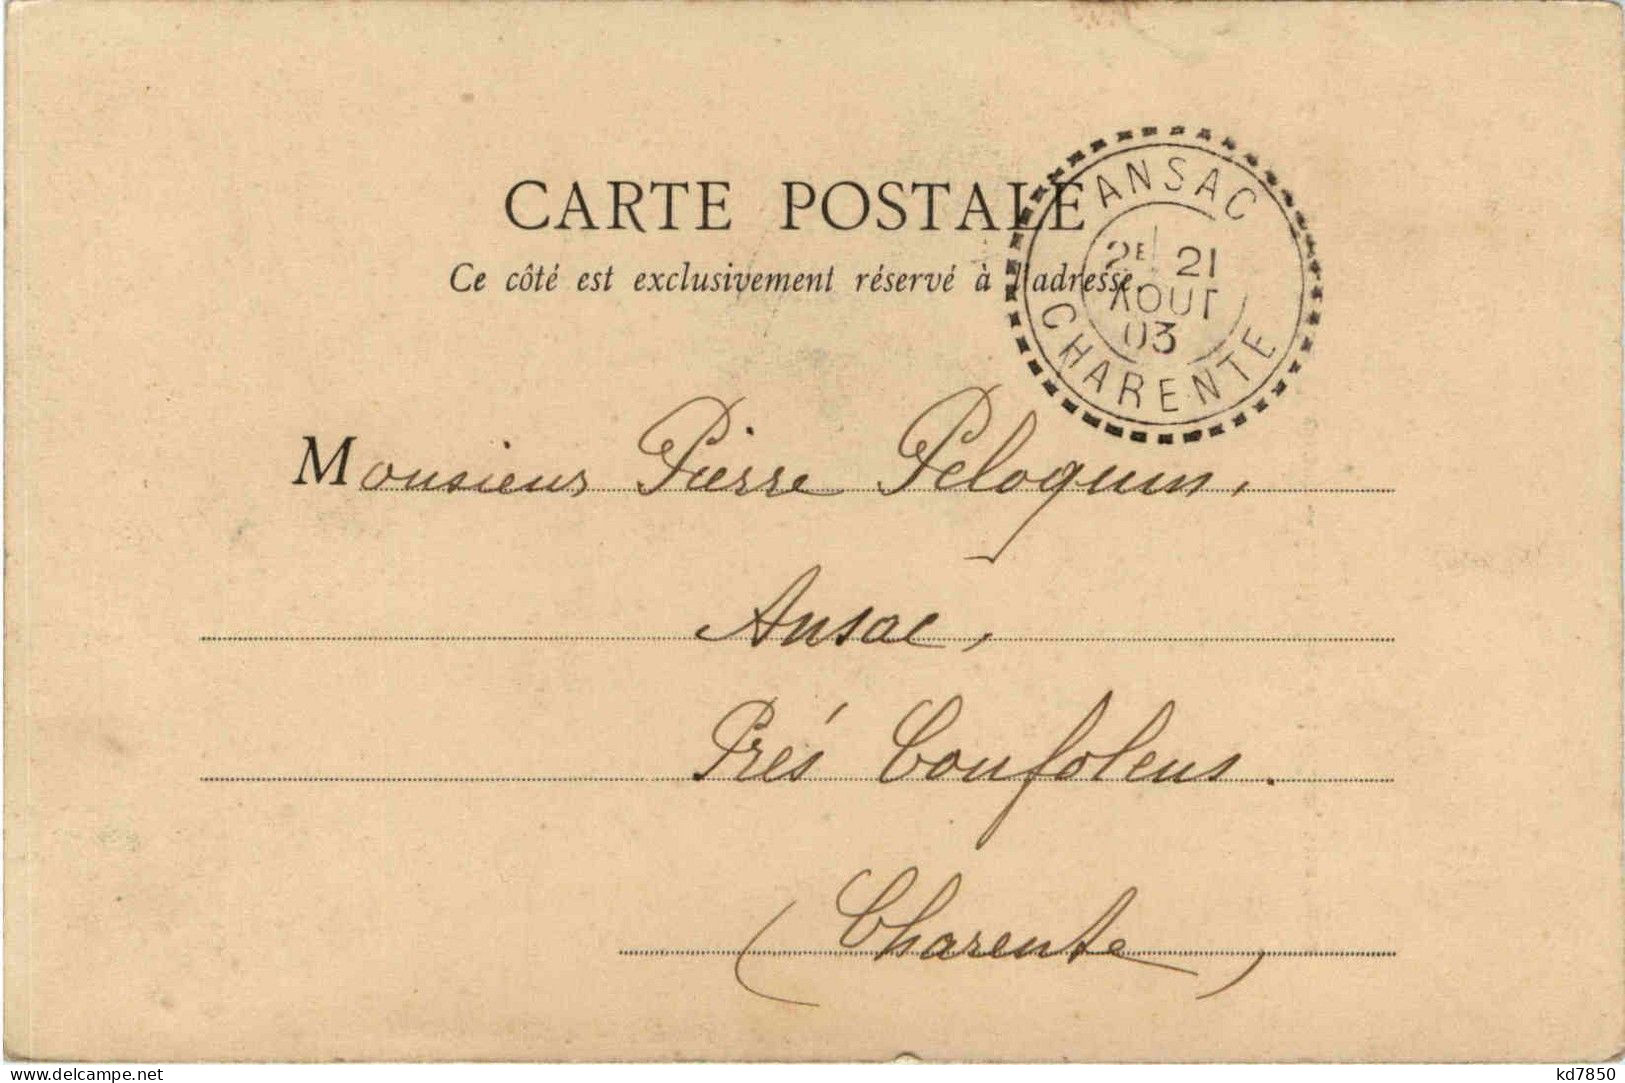 CARTE POSTALE
Ce côté est exclusivement réservé à l'adresse.
ANSAC
2E 21
AOUT
03
CHARENTE
Monsieur Pierre Peloquin,
Ansac,
Prés Confolens.
(Charente)
www.delcampe.net
kd7850